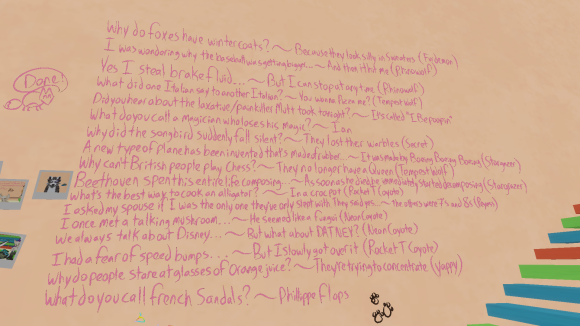 Done!
Why do foxes have winter coats? ~ Because they look silly in Sweaters (Firdemon)
I was wondering why the baseball was getting bigger... ~ And then it hit me (Phirowolf)
Yes I steal brake fluid... ~ But I can stop at any time (Phirowolf)
What did one Italian say to another Italian? ~ You wanna Pizza me? (TempestWolf)
Did you hear about the laxative/painkiller Mutt took tonight? ~ It's called "I.Bepoopin"
What do you call a magician who loses his magic? ~ Ian
Why did the songbird suddenly fall silent? ~ They lost their warbles (Secret)
A new type of plane has been invented that's made of rubber... ~ It was made by Boeing Boeing Boeing
Why can't British people play Chess? ~ They no longer have a Queen (TempestWolf)
Beethoven spent his entire life composing... ~ As soon as he died he immediately started decomposing
What's the best way to cook an alligator? ~ In a croc pot (Pocket T Coyote)
I asked my spouse if I was the only one they've only slept with. They said yes... ~ the others were 7's and 8's
I once met a talking mushroom... ~ He seemed like a fungai (Neon Coyote)
We always talk about Disney... ~ But what about DATNEY? (Neon Coyote)
I had a fear of speed bumps.... ~ But I slowly got over it (Pocket T Coyote)
Why do people stare at glasses of Orange juice? ~ They're trying to concentrate (Yappy)
What do you call french Sandals? ~ Phillippe flops